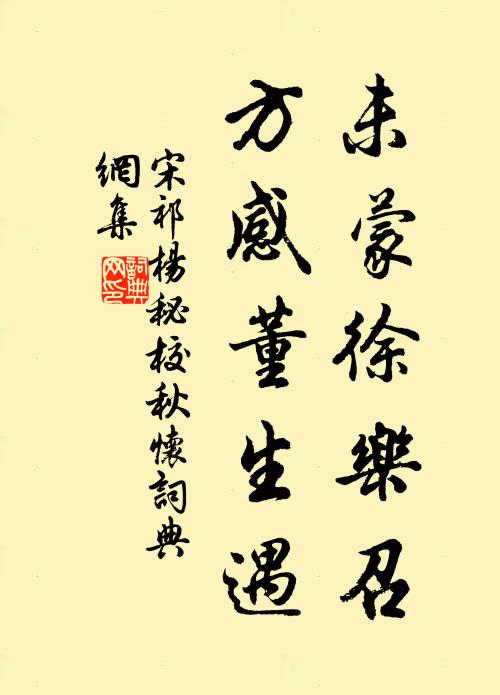 未蒙徐樂召
方感董生遇
宋祁楊秘校秋懷詞典
網集
詞典網印